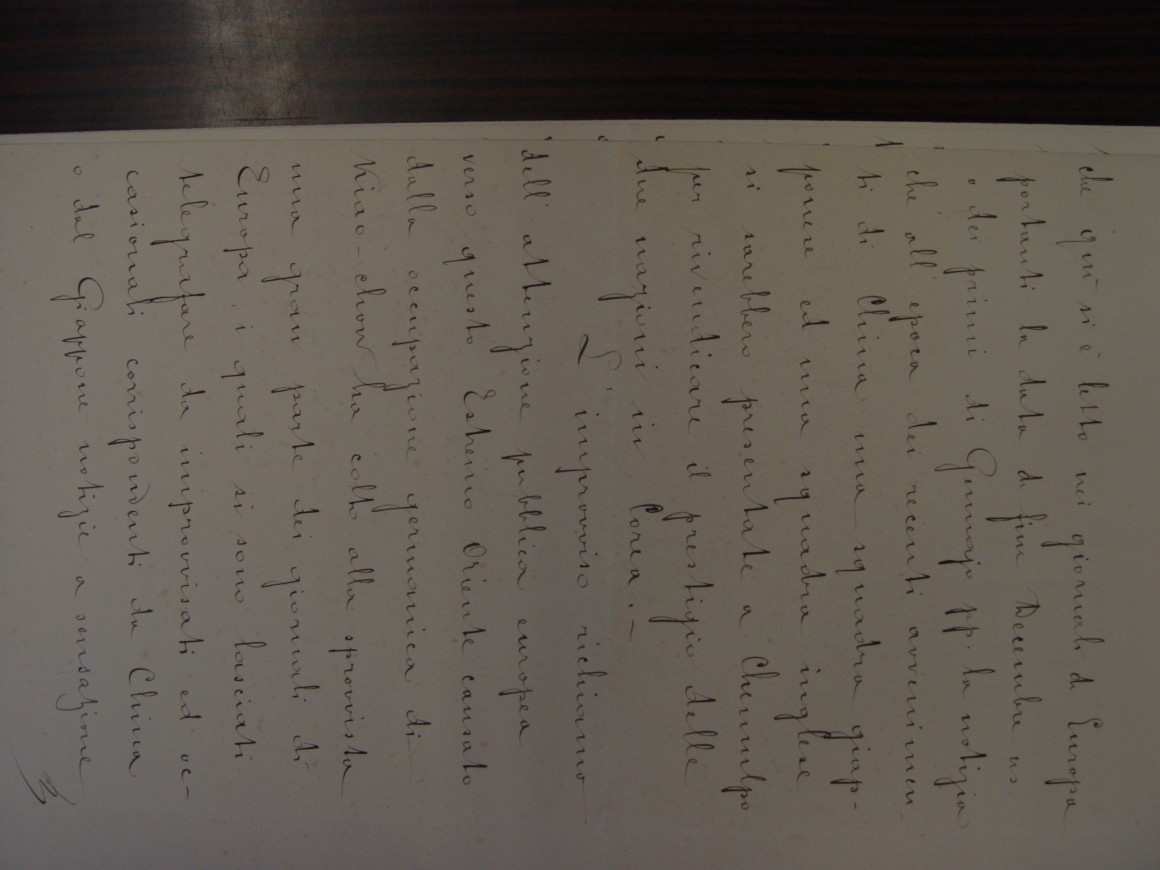 che quì si è letto nei giornali d'Europa
portanti la data di fine Decembre us.
o dei primi di Gennajo pp. la notizia
che all'epoca dei recenti avvenimen-
ti di China una squadra giap-
ponese ed una squadra inglese
si sarebbero presentate a Chemulpo
per rivendicare il prestigio delle
due nazioni in Corea. –
L'improvviso richiamo
dell'attenzione pubblica europea
verso questo Estremo Oriente causato
dalla occupazione germanica di
Kiao-chow ha colto alla sprovvista
una gran parte dei giornali di
Europa, i quali si sono lasciati
telegrafare da improvvisati ed oc-
casionali corrispondenti da China
o dal Giappone notizie a sensazione